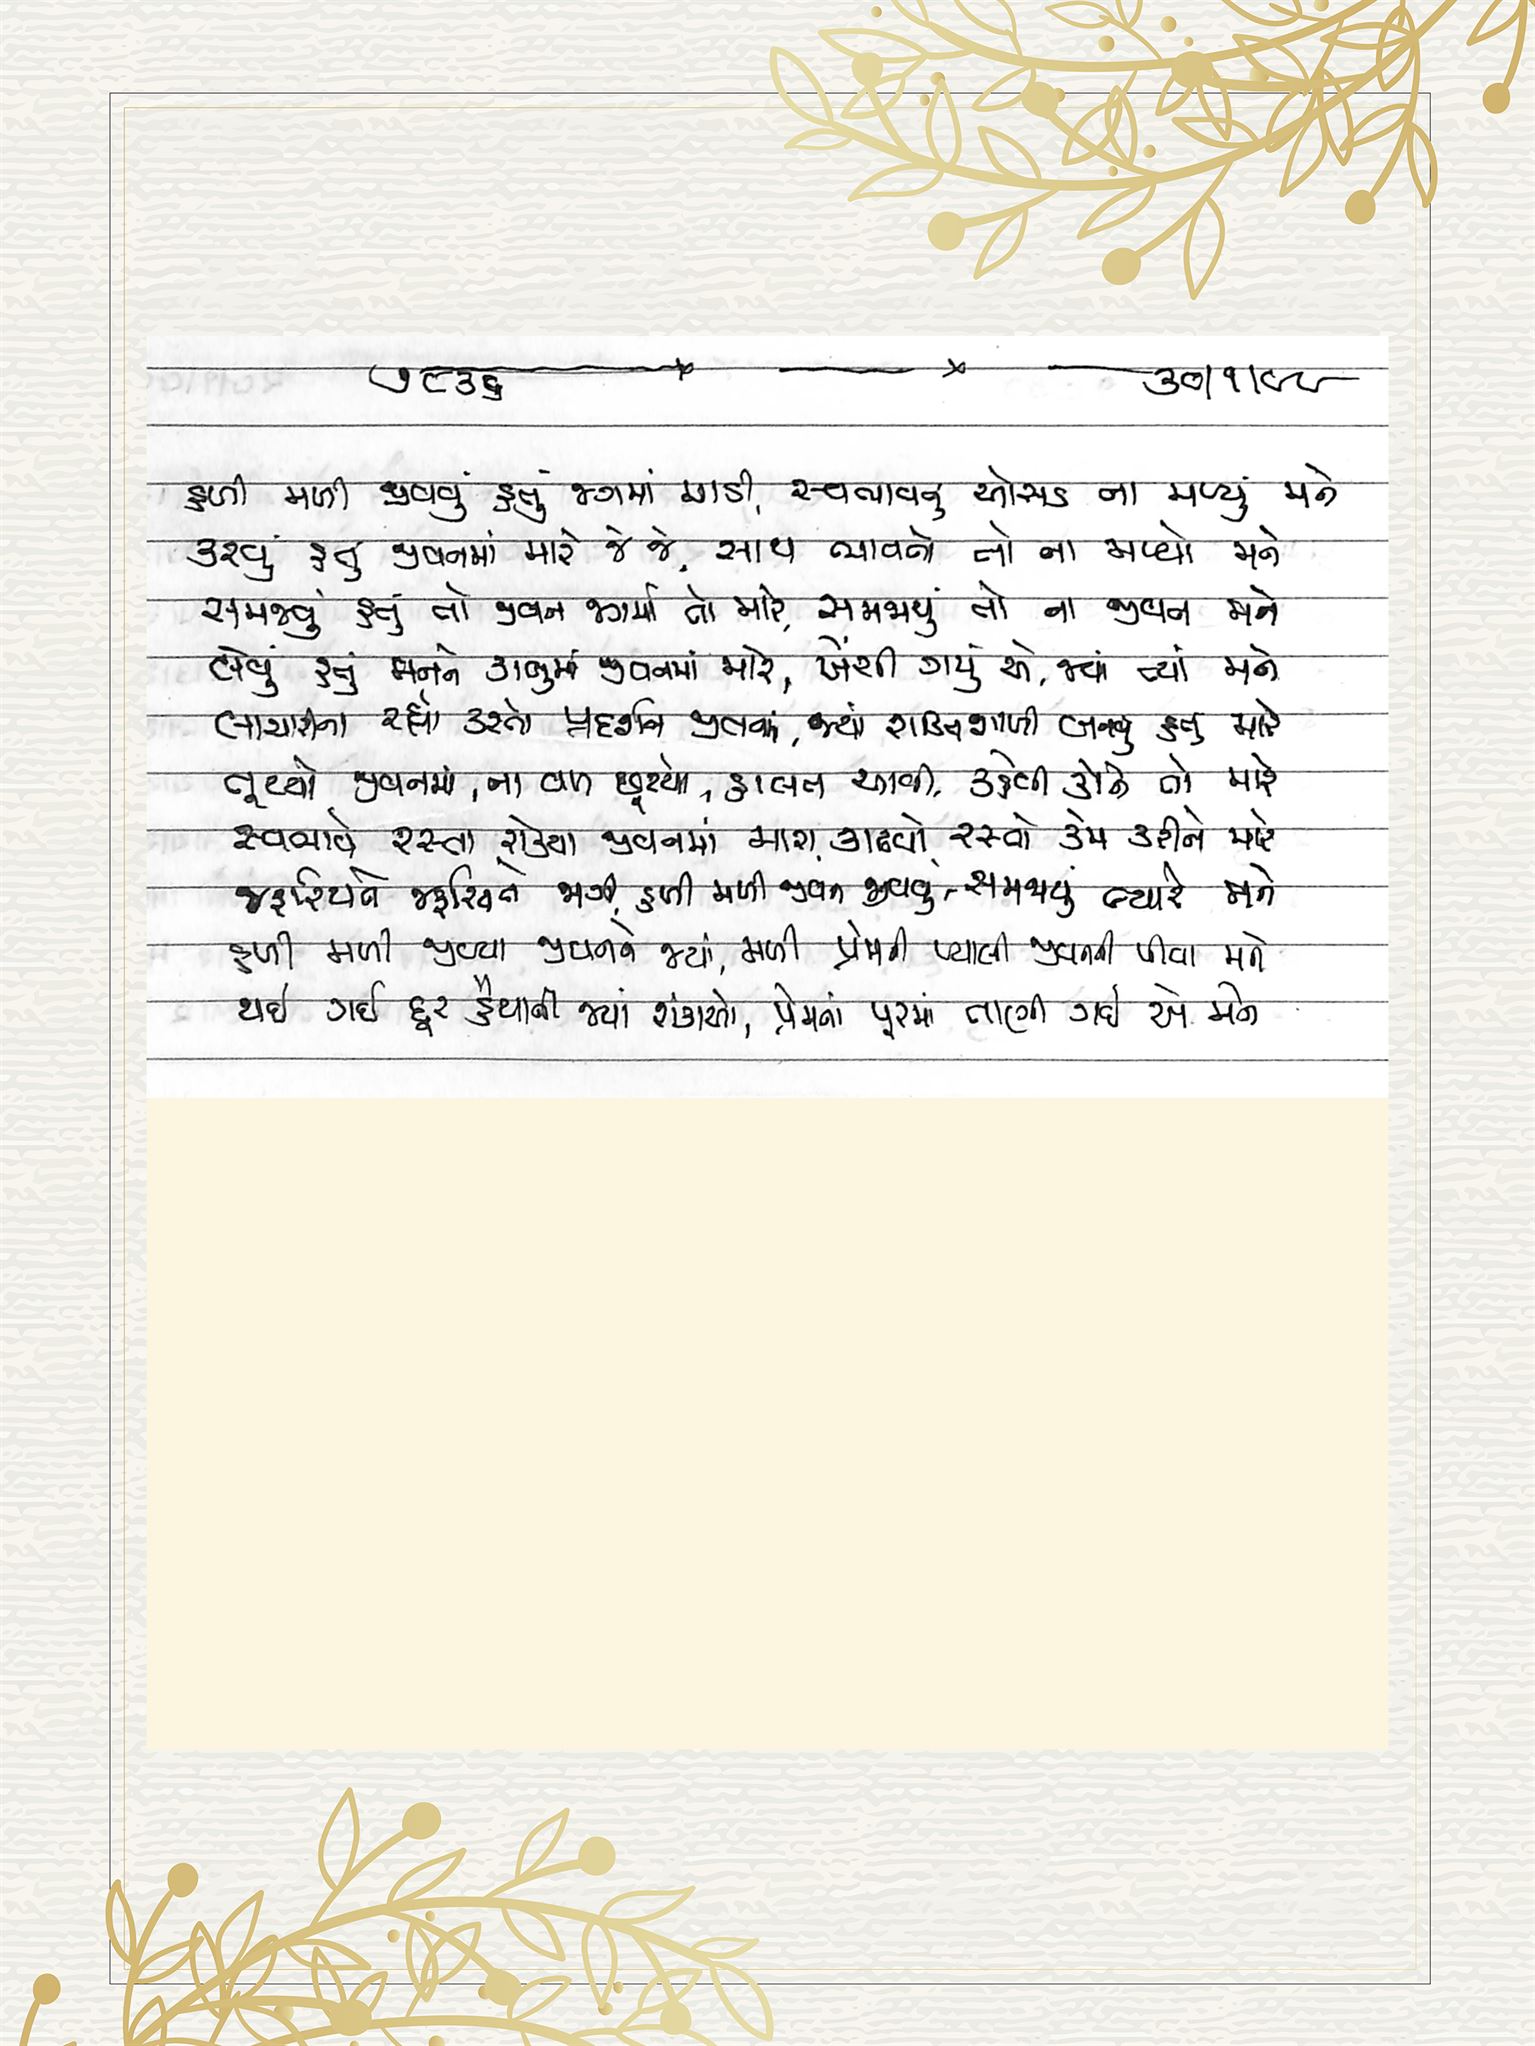 ૭૯૩૬ ૩૦/૧/૯૯
હળી મળી જીવવું હતું જગમાં માડી, સ્વભાવનુ ઓસડ ના મળ્યું મને
કરવું હતુ જીવનમાં મારે જે જે, સાથ ભાવનો તો ના મળ્યો મને
સમજવું હતું તો જીવન જગમાં તો મારે, સમજાયું તો ના જીવન મને
લેવું હતું મનને કાબુમાં જીવનમાં મારે, ખેંચી ગયું એ, જ્યાં ત્યાં મને
લાચારીના રહ્યો કરતો પ્રદર્શન જીવનમાં, જ્યાં શક્તિશાળી બનવુ હતુ મારે
તૂટયો જીવનમાં, ના વળ છૂટયો, હાલત આવી, કહેવી કોને તો મારે
સ્વભાવે રસ્તા રોક્યા જીવનમાં મારા, કાઢવો રસ્તો કેમ કરીને મારે
જરૂરિયાતે જરૂરિયાત જાગી, હળી મળી જીવન જીવવું, સમજાયું ત્યારે મને
હળી મળી જીવ્યા જીવનને જ્યાં, મળી પ્રેમની પ્યાલી જીવનની પીવા મને
થઈ ગઈ દૂર હૈયાની જ્યાં શંકાઓ, પ્રેમનાં પૂરમાં તાણી ગઈ એ મને